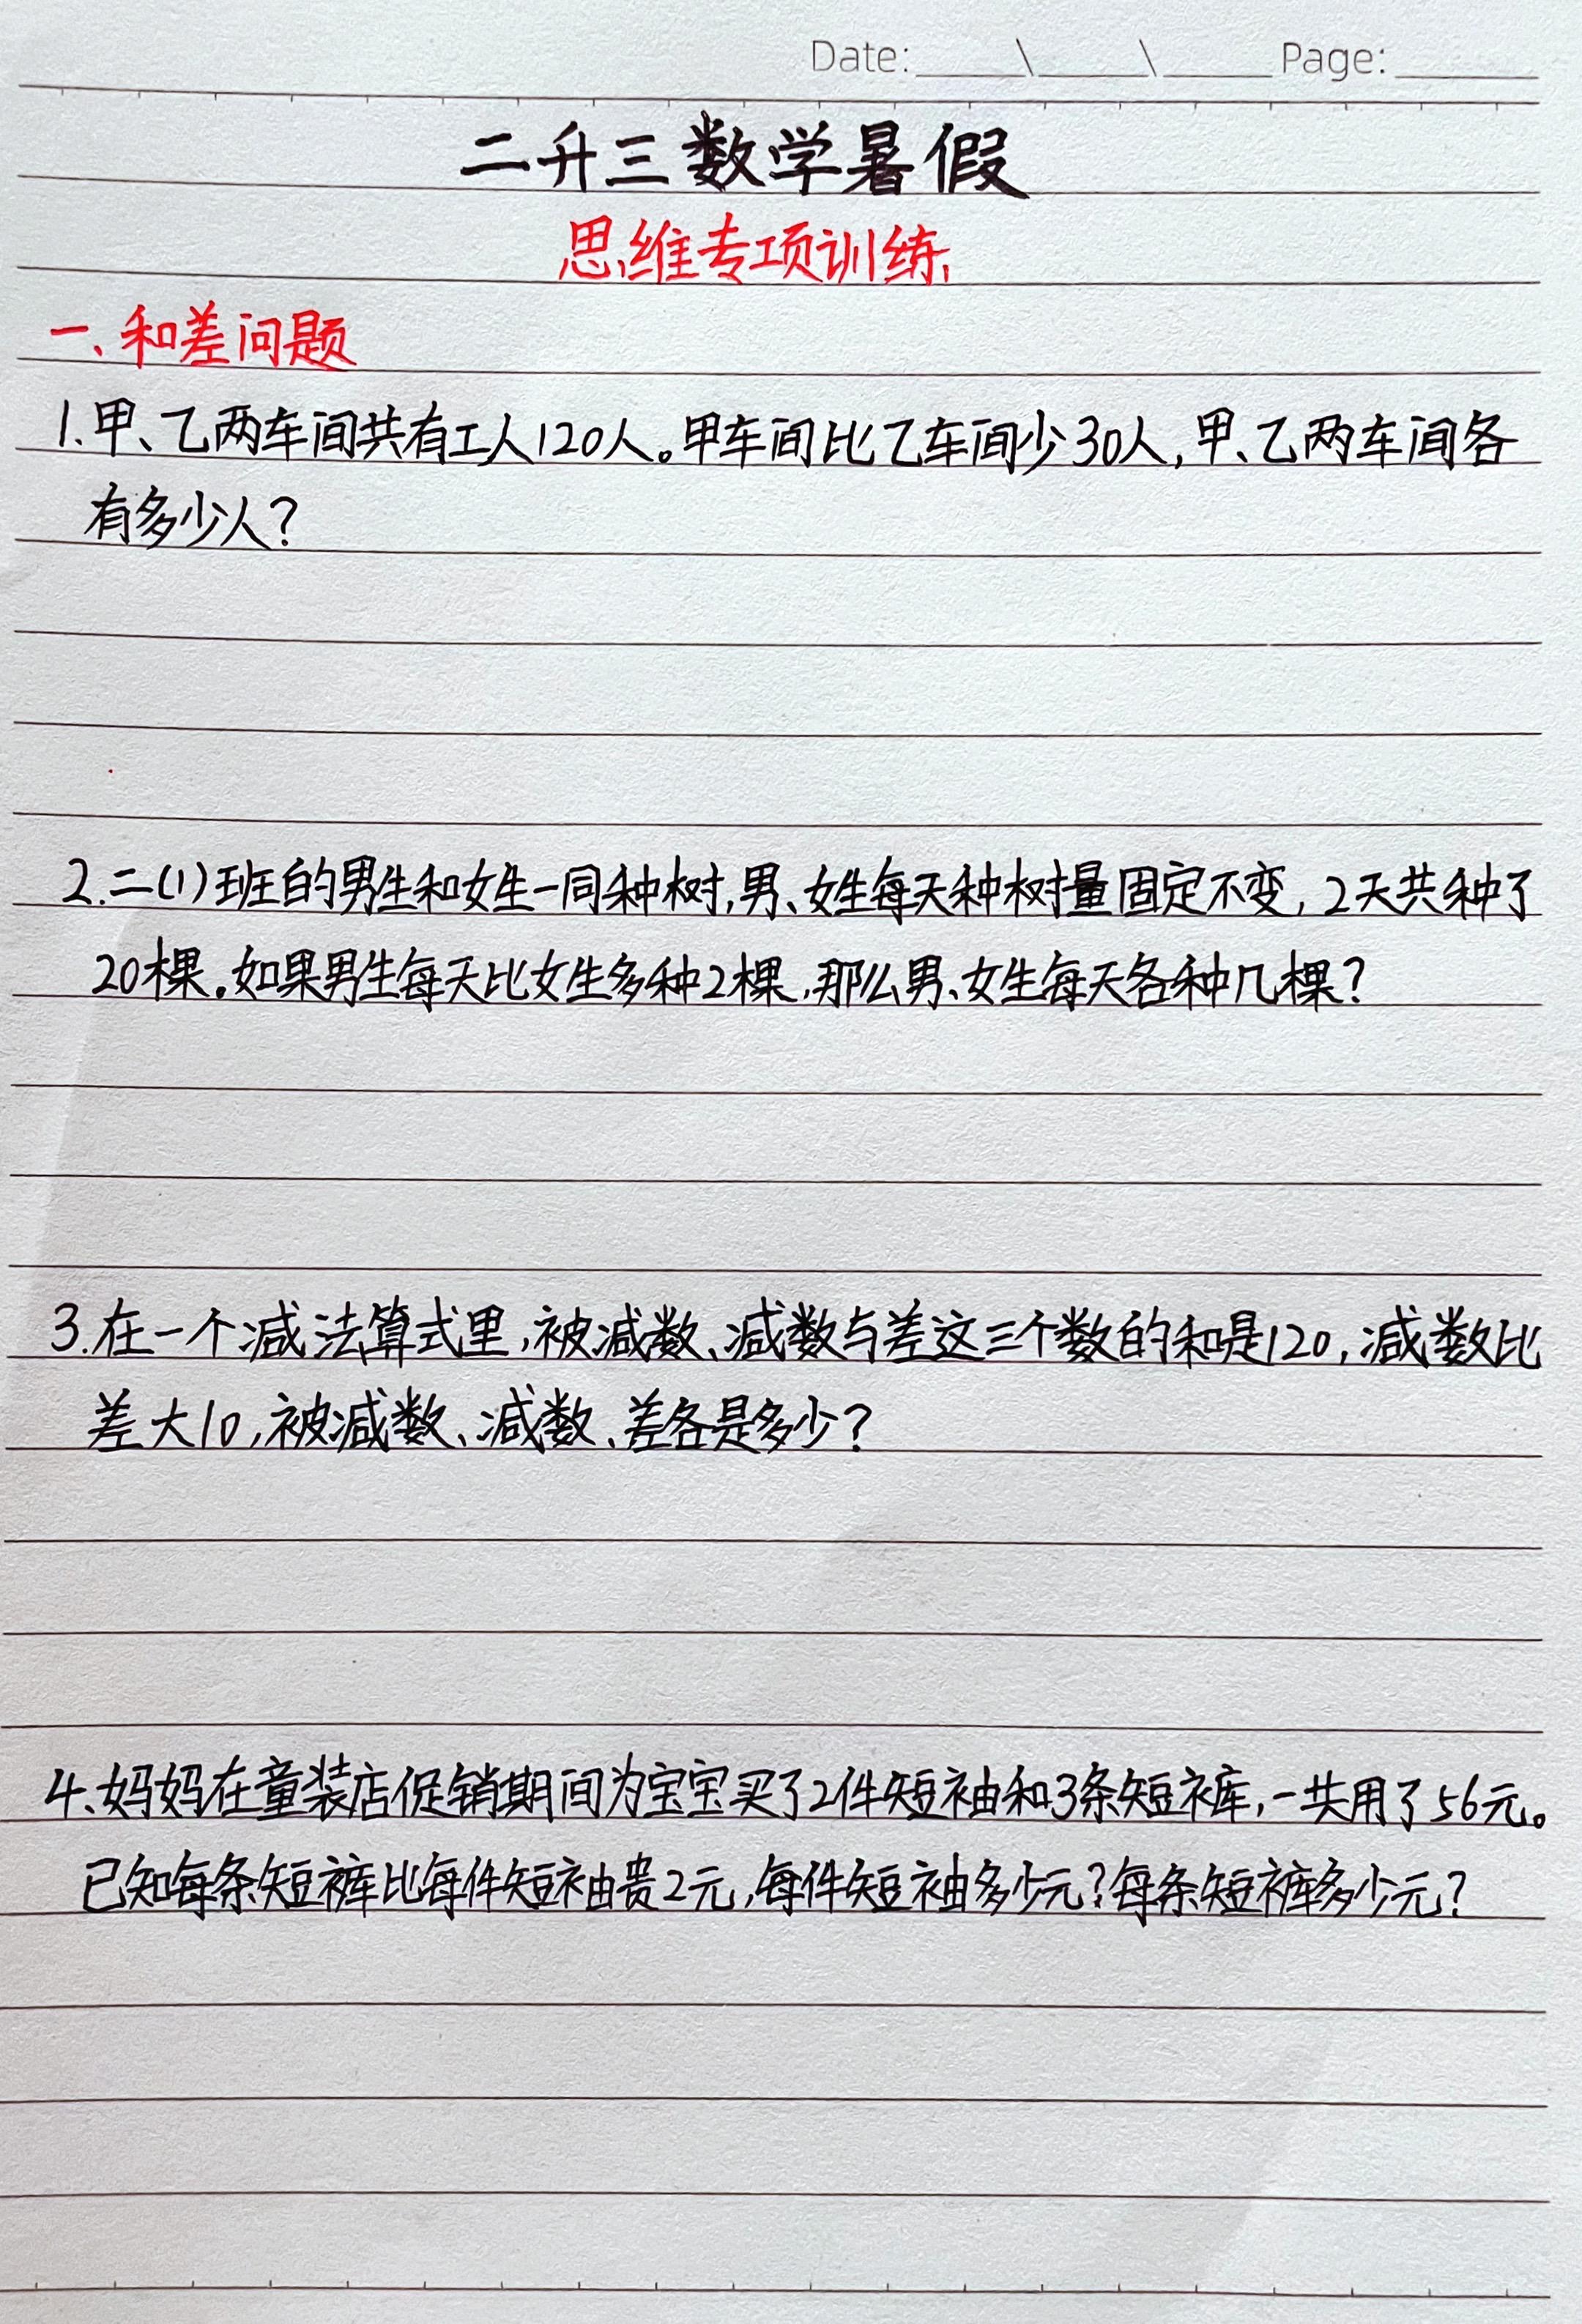 Date: \ \ Page:
二升三数学暑假
思维专项训练
一、和差问题
1.甲、乙两车间共有工人120人。甲车间比乙车间少30人,甲、乙两车间各
有多少人?
2.二(1)班的男生和女生一同种树,男、女生每天种树量固定不变,2天共种了
20棵。如果男生每天比女生多种2棵,那么男、女生每天各种几棵?
3.在一个减法算式里,被减数、减数与差这三个数的和是120,减数比
差大10,被减数、减数、差各是多少?
4、妈妈在童装店促销期间为宝宝买了2件短袖和3条短裤,一共用了56元。
已知每条短裤比每件短袖贵2元,每件短袖多少元?每条短裤多少元?